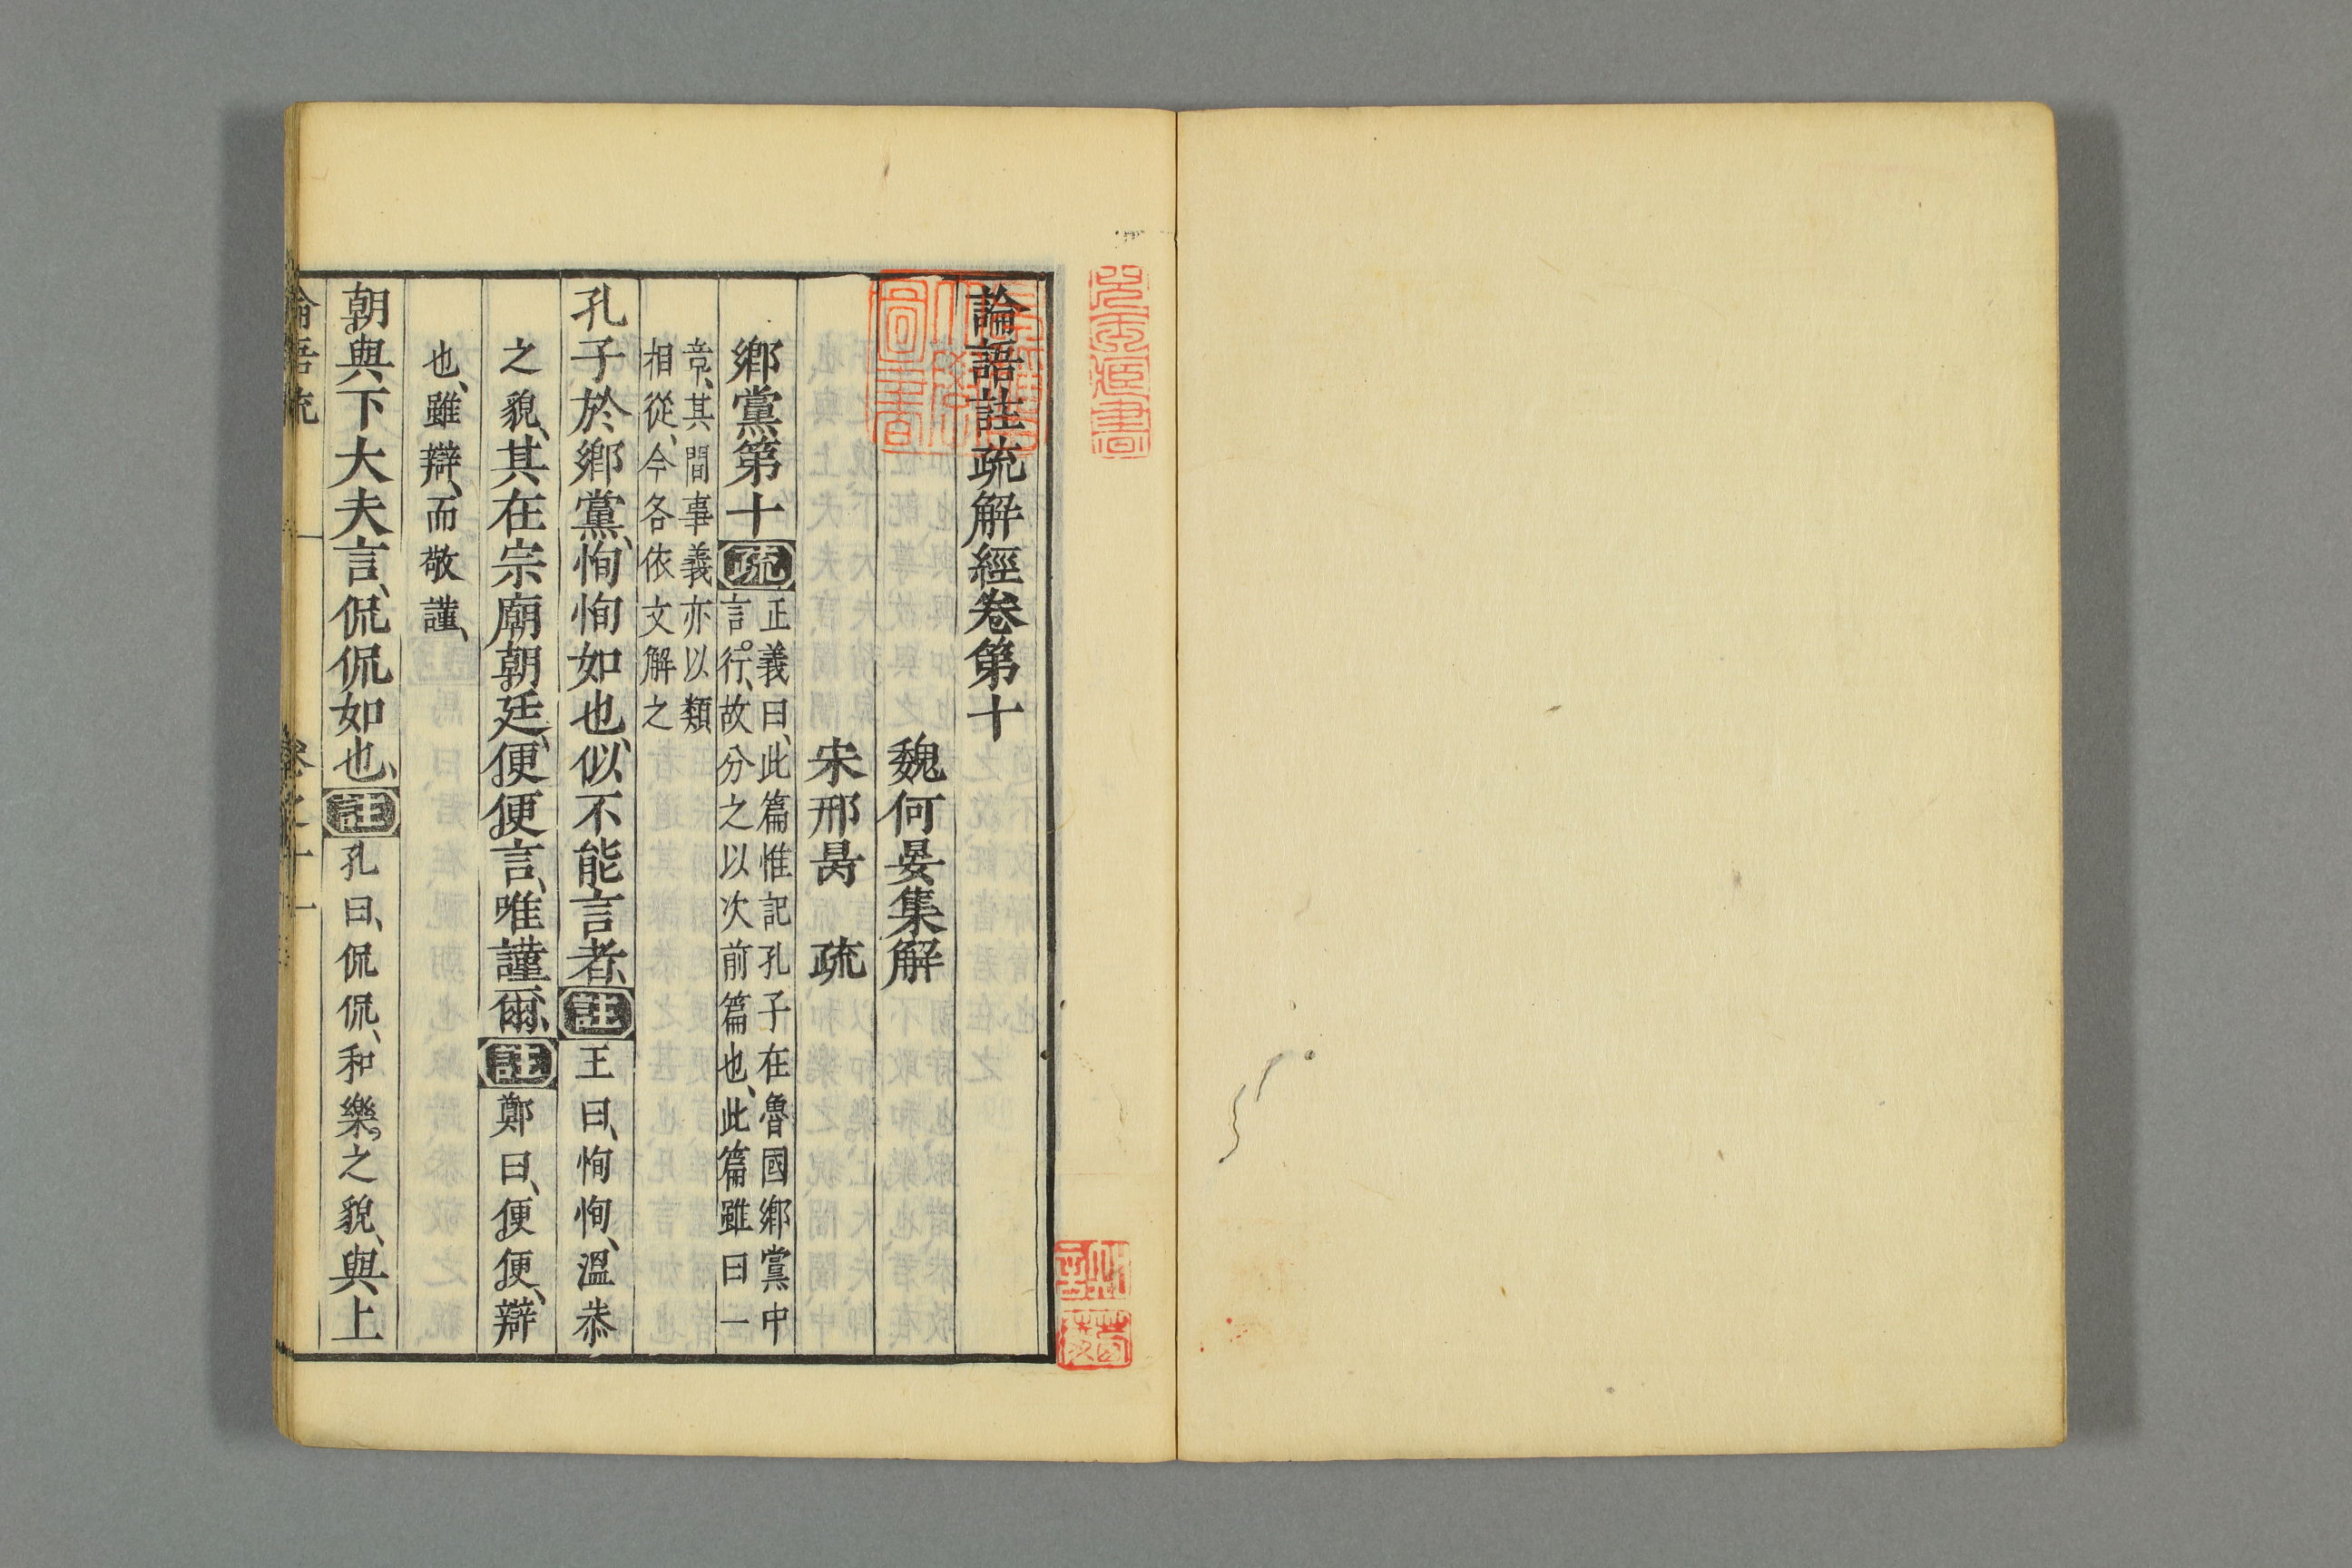 論語註疏解經卷第十
魏何晏集解
宋邢昺　疏
鄉黨第十疏正義曰、此篇惟記孔子在魯國鄉黨中
言行、故分之以次前篇也、此篇雖曰一
章、其間事義亦以類
相從、今各依文解之
孔子於鄉黨、恂恂如也、似不能言者、註王曰、恂恂、溫恭
之貌、其在宗廟朝廷、便便言、唯謹爾、註鄭曰、便便、辯
也、雖辯、而敬謹、
朝與下大夫言、侃侃如也、註孔曰、侃侃、和樂之貌、與上
圖書